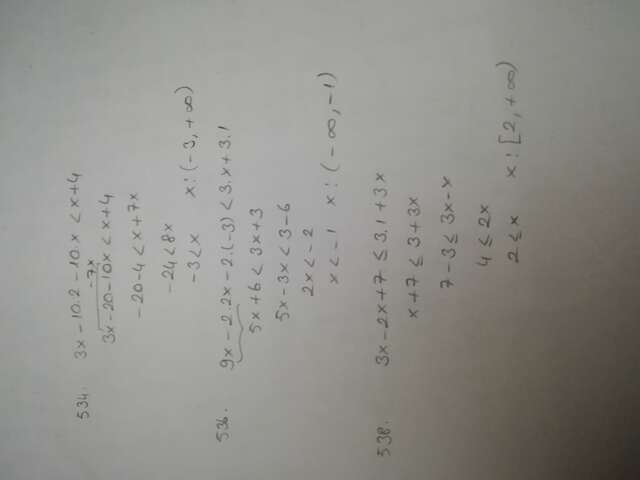 534. 3x - 10.2 - 10.x < x + 4
-7x
3x - 20 - 10x < x + 4
-20 - 4 < x + 7x
-24 < 8x
-3 < x x : (-3, +∞)
536. 9x - 2.2x - 2.(-3) < 3.x + 3.1
5x + 6 < 3x + 3
5x - 3x < 3 - 6
2x < -2
x < -1 x : (-∞, -1)
538. 3x - 2x + 7 ≤ 3.1 + 3x
x + 7 ≤ 3 + 3x
7 - 3 ≤ 3x - x
4 ≤ 2x
2 ≤ x x : [2, +∞)